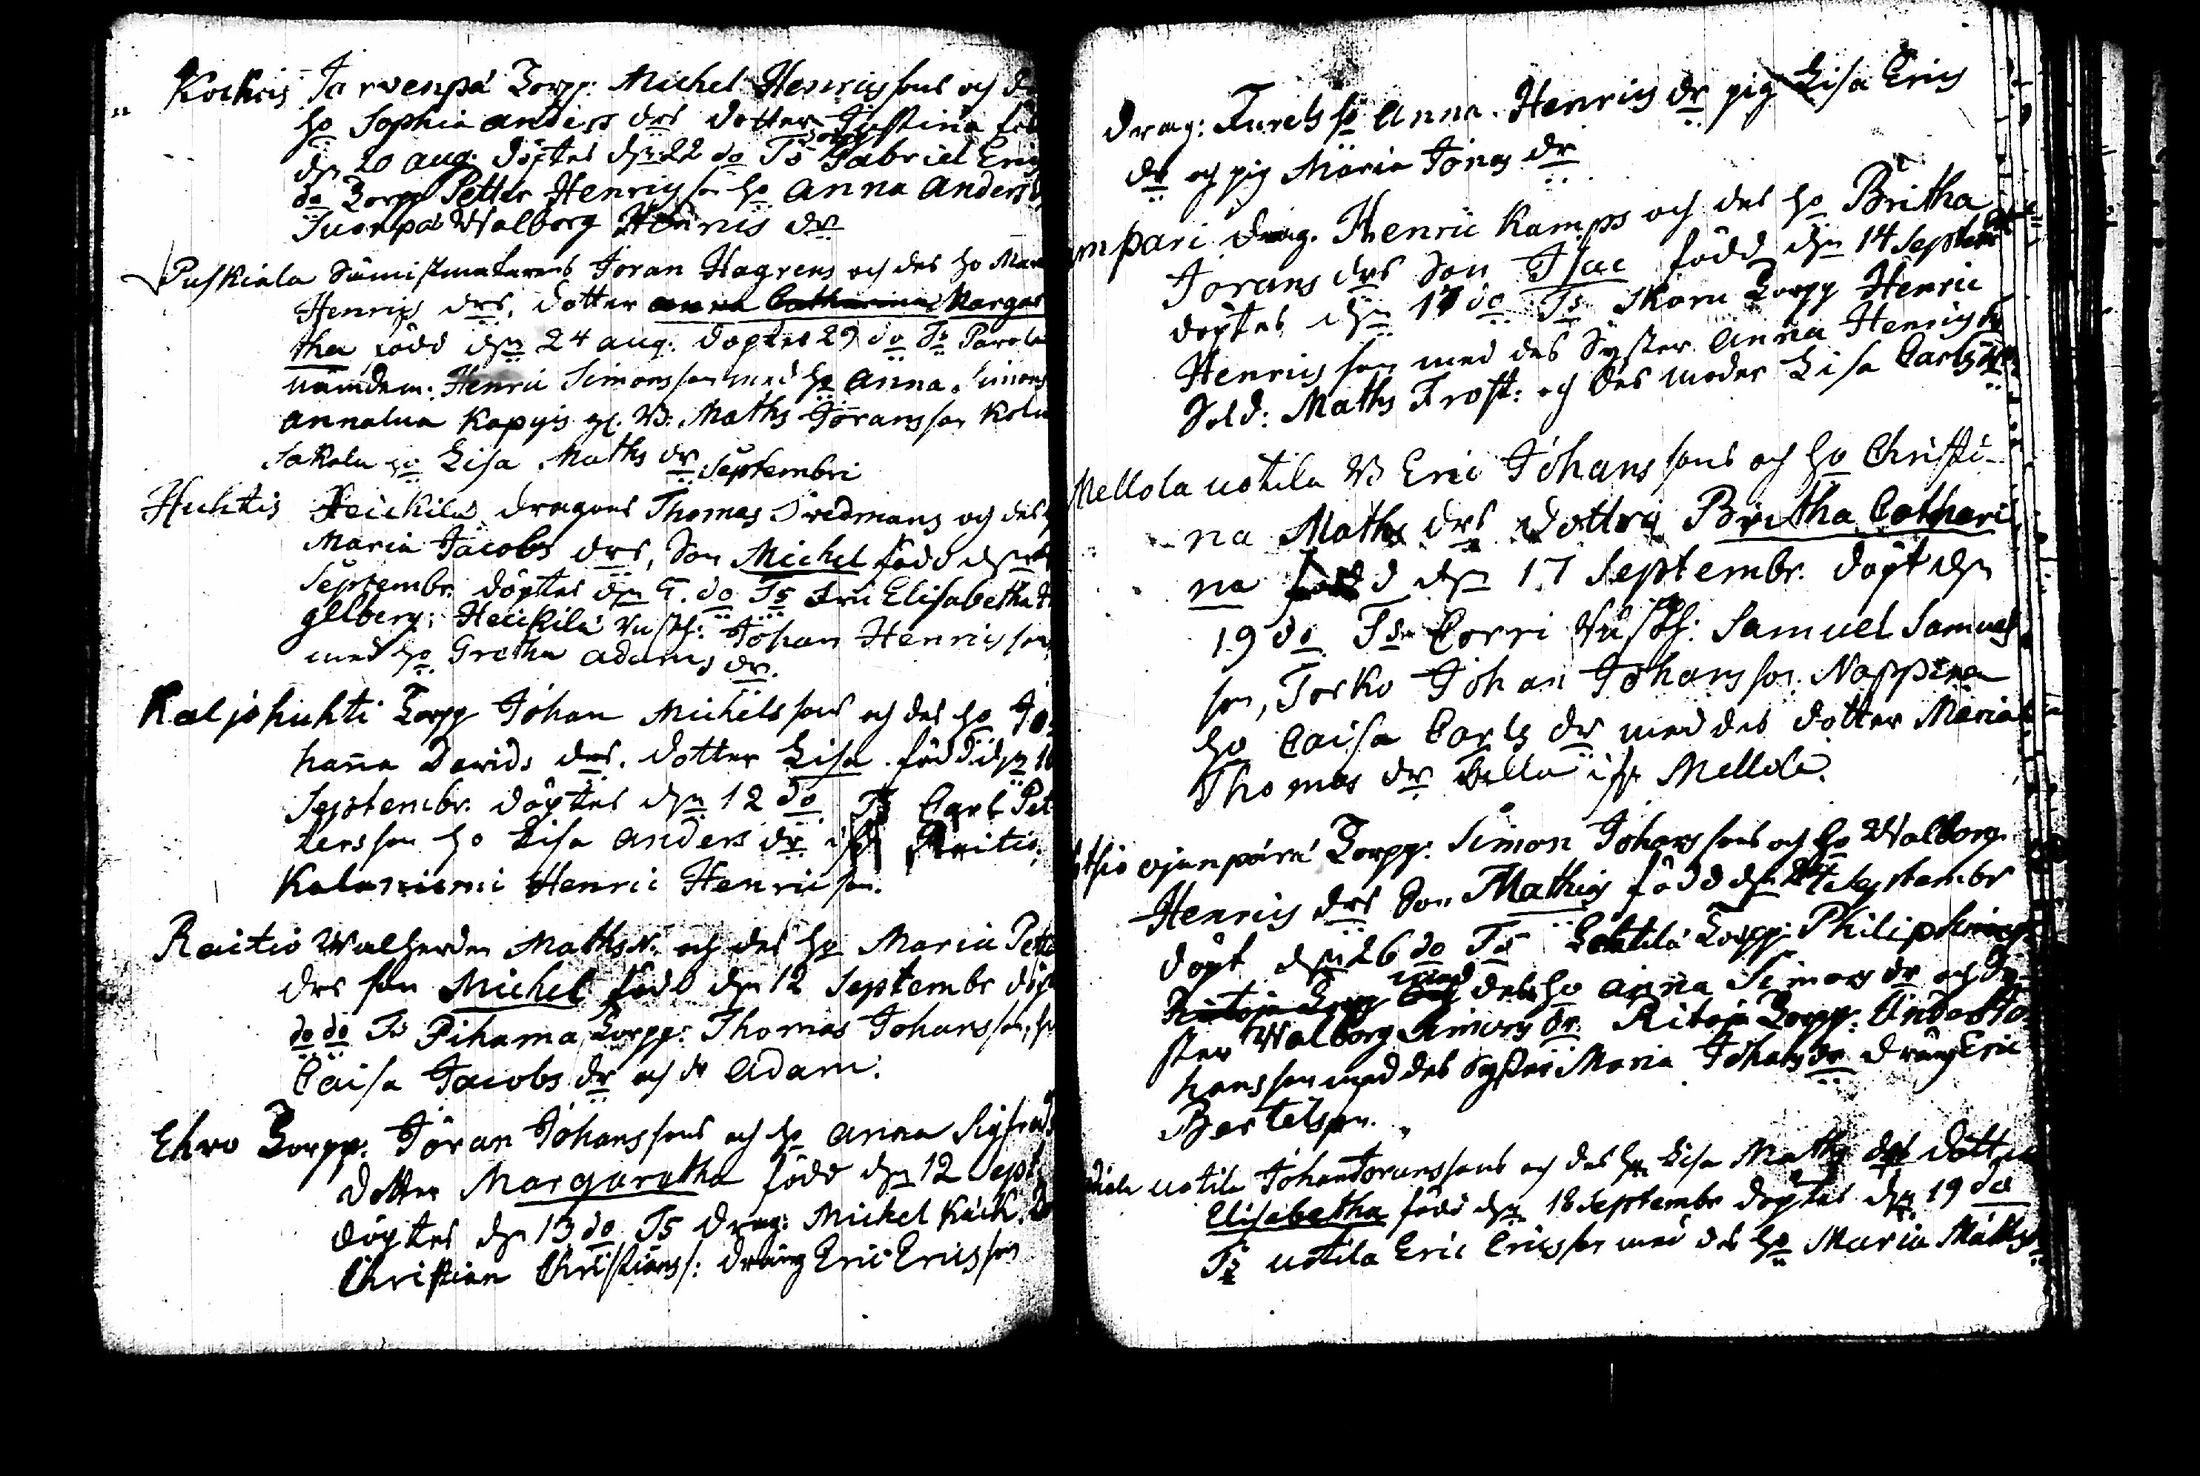 Kockis Jarvenpä Torpp: Michel Henricssons och
ho Sophia anders drs dotter Justina
dn 20 aug. döptes dn 22 do Ts Gabriel Eric
do Torpp Petter Henricsson ho Anna Anders
Walborg Henrics dr
Puskiala Jöran Hagrens och des ho
Henrics drs, dotter anna Catharina Margar
tha född dn 24 aug. döptes 29 do Ts Parola
nämdem: Henric Simonsson med ho Anna Simons
annalua Maths Jöransson
Sakola ho Lisa Maths dr
Septembri
Huhtis Heickilä dragons Thomas Fredmans och des
Maria Jacobs drs, Son Michel född dn
Septembr. döptes dn 9. do Ts Fru Elisabetha
gelberg: Heickilä Rusth: Johan Henricsson
med ho Gretha adams dr.
Kaljohuhti Torpp Johan Michelssons och des ho Jo
hanna Davids drs. dotter Lisa född dn 10
Septembr. döptes dn 12 do Ts Carl Pet
tersson ho Lisa anders dr ifr. Raitio,
Kalaniemi Henric Henricson.
Raitio Walherden Maths N. och des ho Maria Pett
drs son Michel född dn 12 Septembr döpt
do do Ts Pihama Torpp: Thomas Johansson, ho
Caisa Jacobs dr och dr Adam.
Ehro Torpp. Jöran Johanssons och ho Anna Sigfreds
dotter Margaretha född dn 12 Sept
döptes dn 13 do Ts drag: Michel Käck.
Christian Christianss: dräng Eric Ericsson
drag: Furets ho Anna Henrics dr pig Lisa Erics
dr och pig Maria Jönas dr
mpari drag. Henric Kamps och des ho Britha
Jörans drs Son Isac född dn 14 Septembr
döptes dn 17 do Ts Skoru Torpp Henric
Henricsson med des Syster Anna Henrics dr
Sold: Maths Frost: och des moder Lisa Carls dr
Mellola Uotila B Eric Johanssons och ho Christi-
na Maths drs dotter Britha Cathari
na född dn 17 Septembr. döpt dn
19 do Ts Corri Rusth: Samuel Samuels
son, Torko Johan Johansson Nappinen
ho Caisa Carls dr med des dotter Maria
Thomas dr ifr Mellola.
Torpp: Simon Johanssons och ho Walborg
Henrics drs Son Mathias född dn 24 Septembr
döpt dn 26 do Ts Torpp: Philip Simons
med des ho Anna Simons dr och Sy
ster Walborg Simons dr Ritoja Torpp: Anders Jo
hansson med des Syster Maria Johans dr dräng Eric
Bertelson.
Uotila Johan Göranssons och des ho Lisa Maths drs dotter
Elisabetha född dn 18 Septembr döptes dn 19 do
Ts Uotila Eric Ericsson med des ho Maria Maths